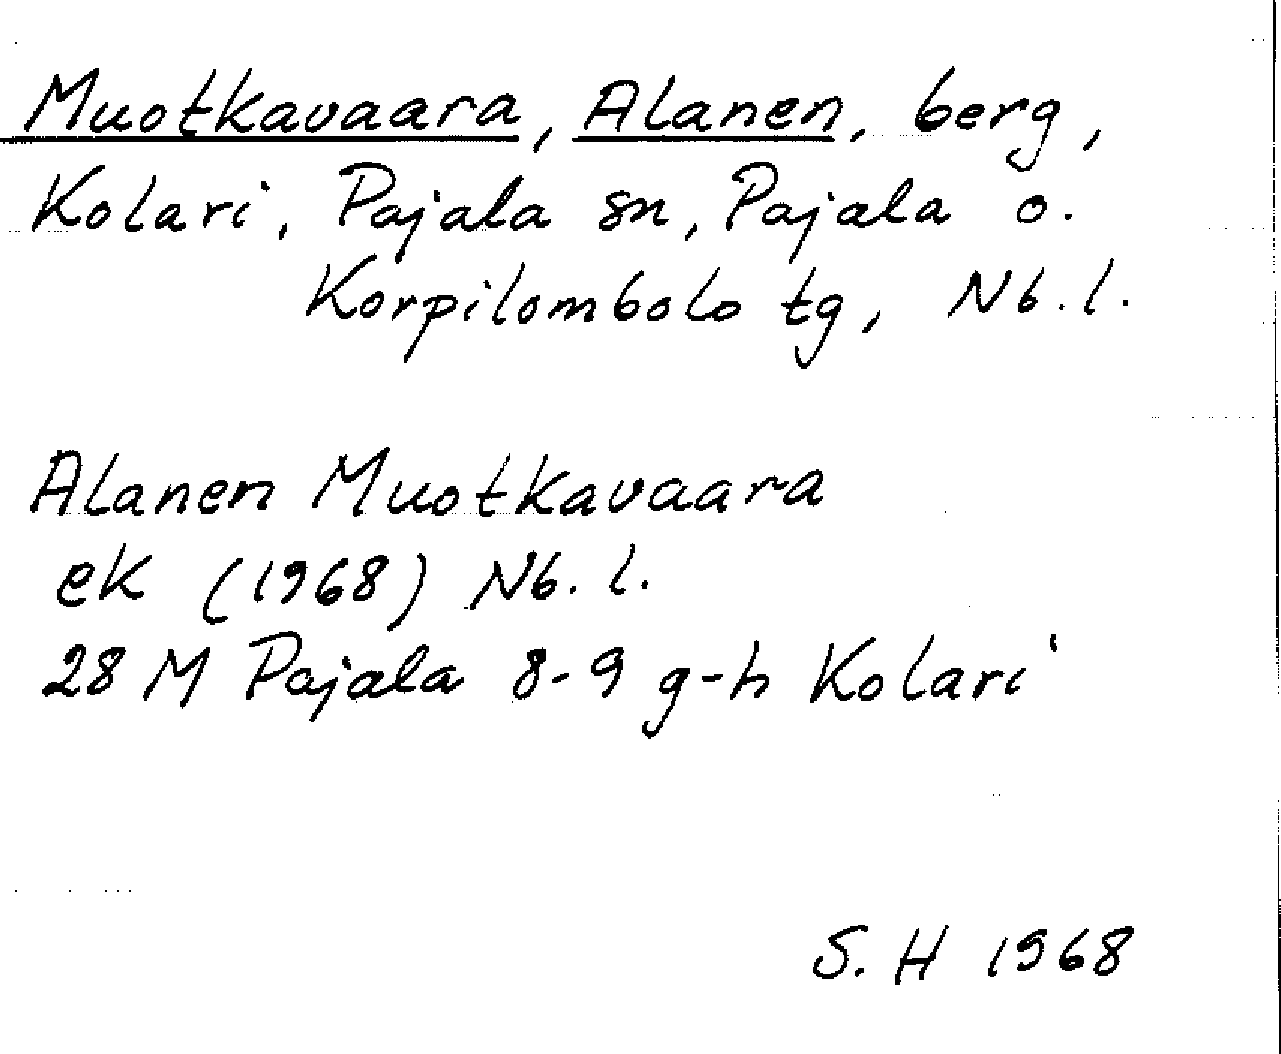 Muotkavaara, Alanen, berg,
Kolari, Pajala sn, Pajala o.
Korpilombolo tg, Nb.l.
Alanen Muotkavaara
ek (1968) Nb.l.
28 M Pajala 8-9 g-h Kolari
S. H 1968